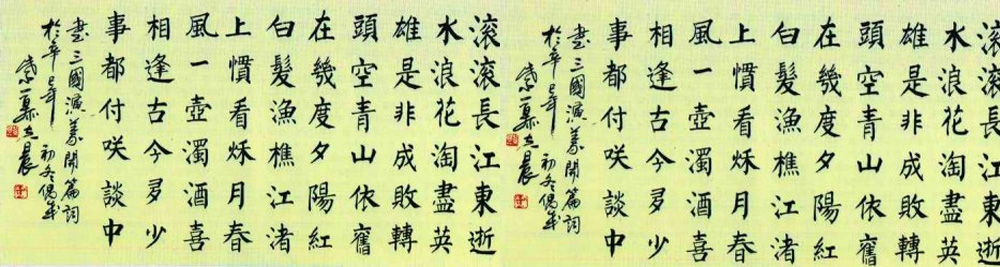 滚滚長江東逝
水浪花淘盡英
雄是非成敗轉
頭空青山依舊
在幾度夕陽紅
白髮漁樵江渚
上慣看秌月春
風一壺濁酒喜
相逢古今多少
事都付咲談中
書三國演義開篇詞
於辛巳年初冬偶成
滚滚長江東逝
水浪花淘盡英
雄是非成敗轉
頭空青山依舊
在幾度夕陽紅
白髮漁樵江渚
上慣看秌月春
風一壺濁酒喜
相逢古今多少
事都付咲談中
書三國演義開篇詞
於辛巳年初冬偶成